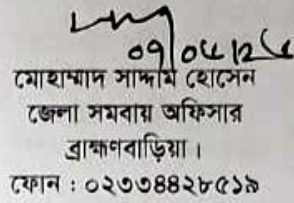 ০৭/০৫/২৫
মোহাম্মাদ সাদ্দাম হোসেন
জেলা সমবায় অফিসার
ব্রাহ্মণবাড়িয়া।
ফোন : ০২৩৩৪৪২৮৫১৯